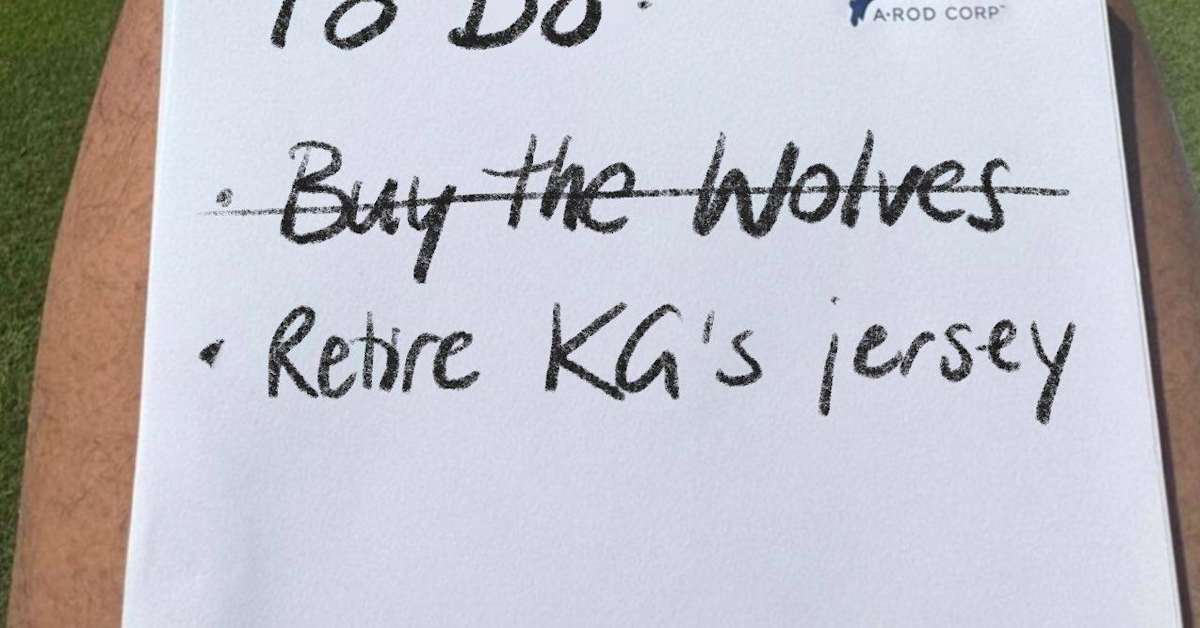 To Do:
A·ROD CORP™
• Buy the Wolves
• Retire KG's jersey